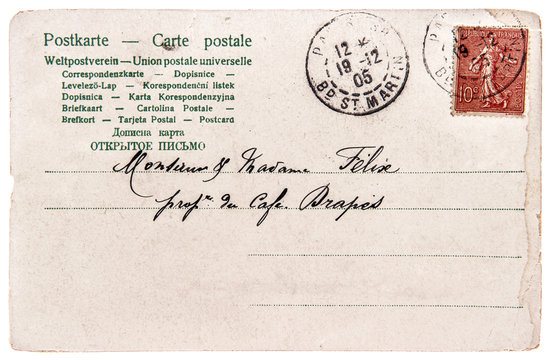 Postkarte — Carte postale
Weltpostverein — Union postale universelle
Correspondenzkarte — Dopisnice —
Levelező-Lap — Korespondenční lístek
Dopisnica — Karta Korespondenzyjna
Briefkaart — Cartolina Postale —
Brefkort — Tarjeta Postal — Postcard
Дописна карта
ОТКРЫТОЕ ПИСЬМО
12
19 -12
05
BD ST. MARTIN
10c
Monsieur & Madame Félix
propre du Café Brapes